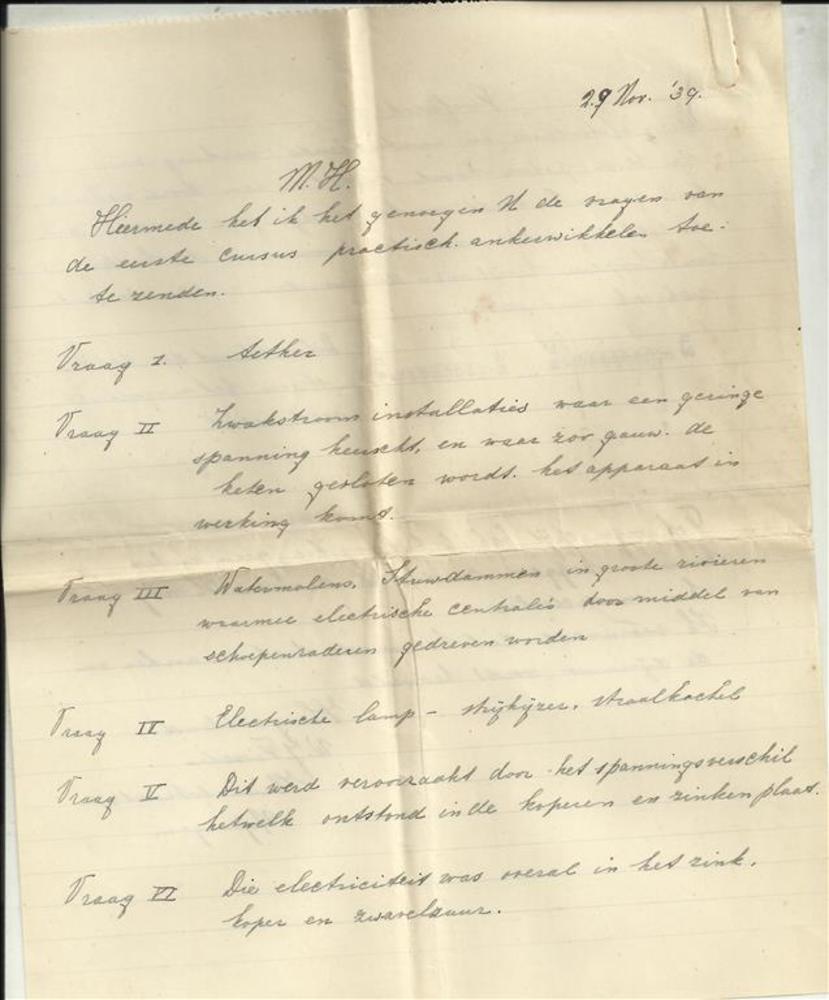 29 Nov. '39.
M.H.
Hiermede heb ik het genoegen U de vragen van
de eerste cursus practisch. ankerwikkelen toe-
te zenden.
Vraag I. Aether
Vraag II Zwakstroom installaties waar een geringe
spanning heerscht, en waar zoo gauw. de
keten gesloten wordt. het apparaat in
werking komt.
Vraag III Watermolens, Stuwdammen in groote rivieren
waarmee electrische centrale's door middel van
schoepenraderen gedreven worden
Vraag IV Electrische lamp - strijkijzer, straalkachel
Vraag V Dit werd veroorzaakt door het spanningsverschil
hetwelk ontstond in de koperen en zinken plaat.
Vraag VI Die electriciteit was overal in het zink,
koper en zwavelzuur.